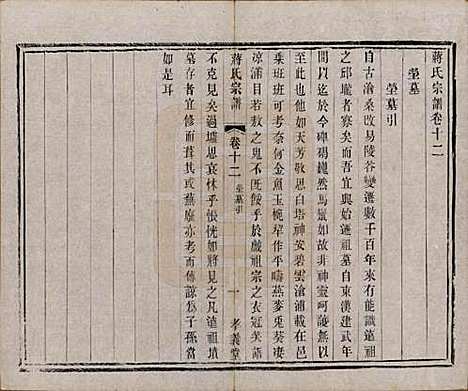 蔣氏宗譜卷十二
塋墓
塋墓引
自古滄桑改易陵谷變遷數千百年來有能識遠祖
之邱壠者寡矣而吾宜與始遷祖墓自東漢建武年
間以迄於今碑碣巍然馬鬣如故非神靈呵護無以
至此他如天芳敬思白塔神安碧雲滄浦載在邑
乘班班可考奈何金魚玉椀早作平疇燕麥兎葵淒
涼滿目若敖之鬼不既餒乎於戲祖宗之衣冠矣
蔣氏宗譜
卷十二
塋墓引
一
孝義堂
不克見矣過墟思哀怵乎悵恍如將見之凡遠祖墳
墓存者宜修而葺其或蕪廢亦考而傳諒為子孫當
如是耳